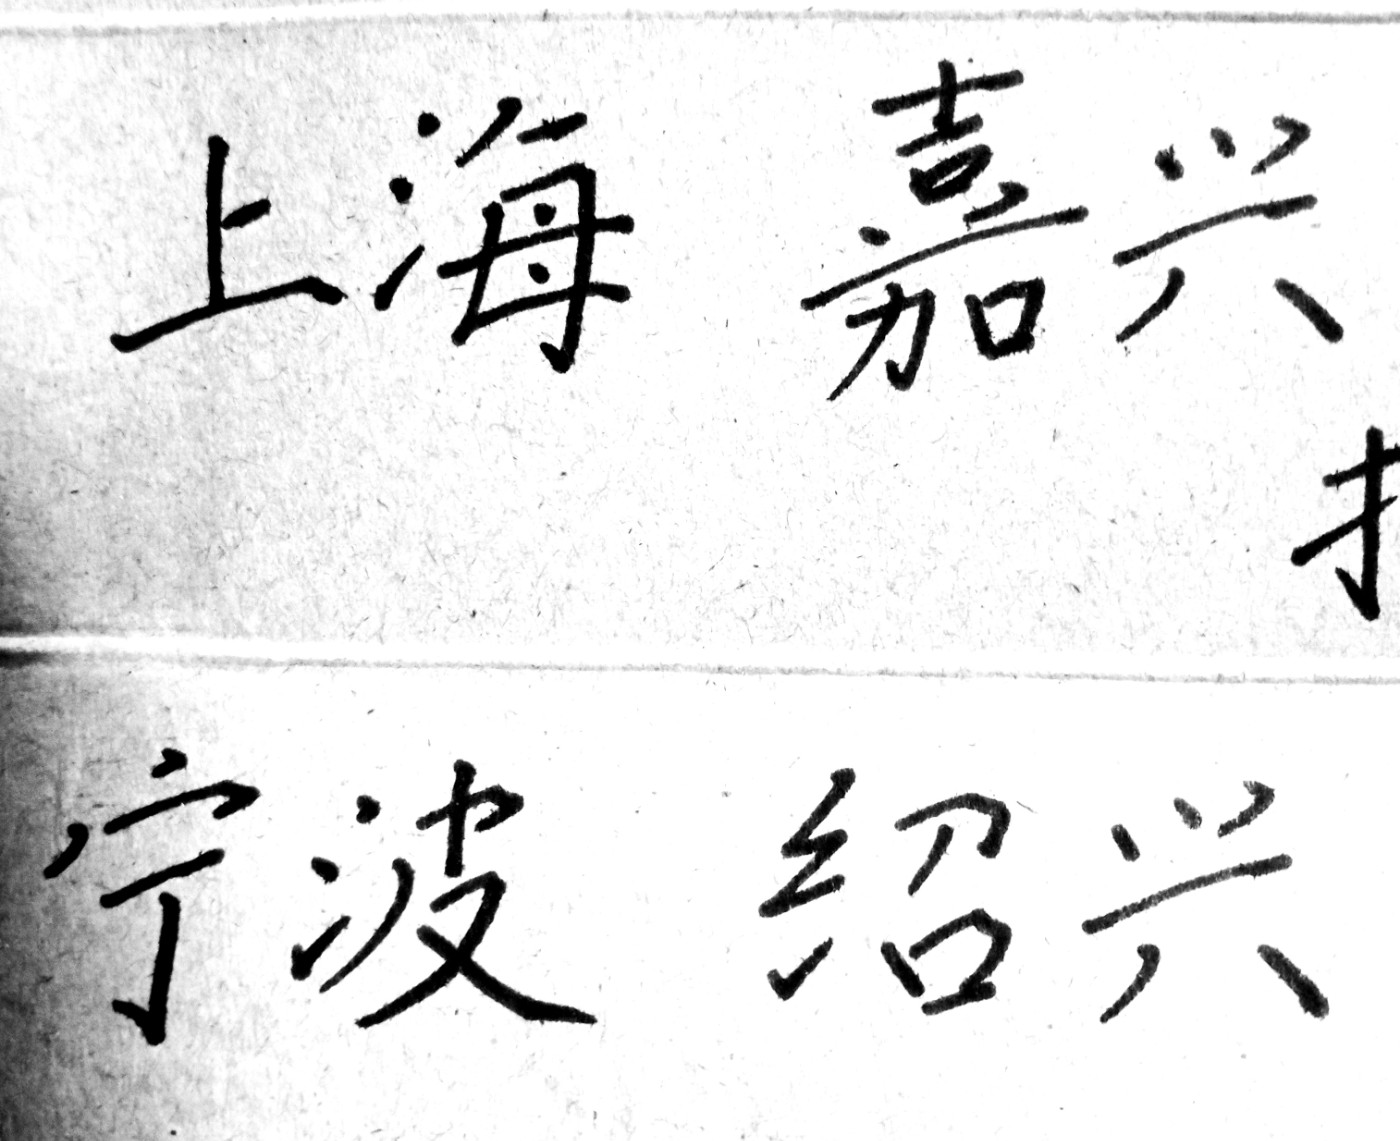 上海 嘉兴
宁波 绍兴